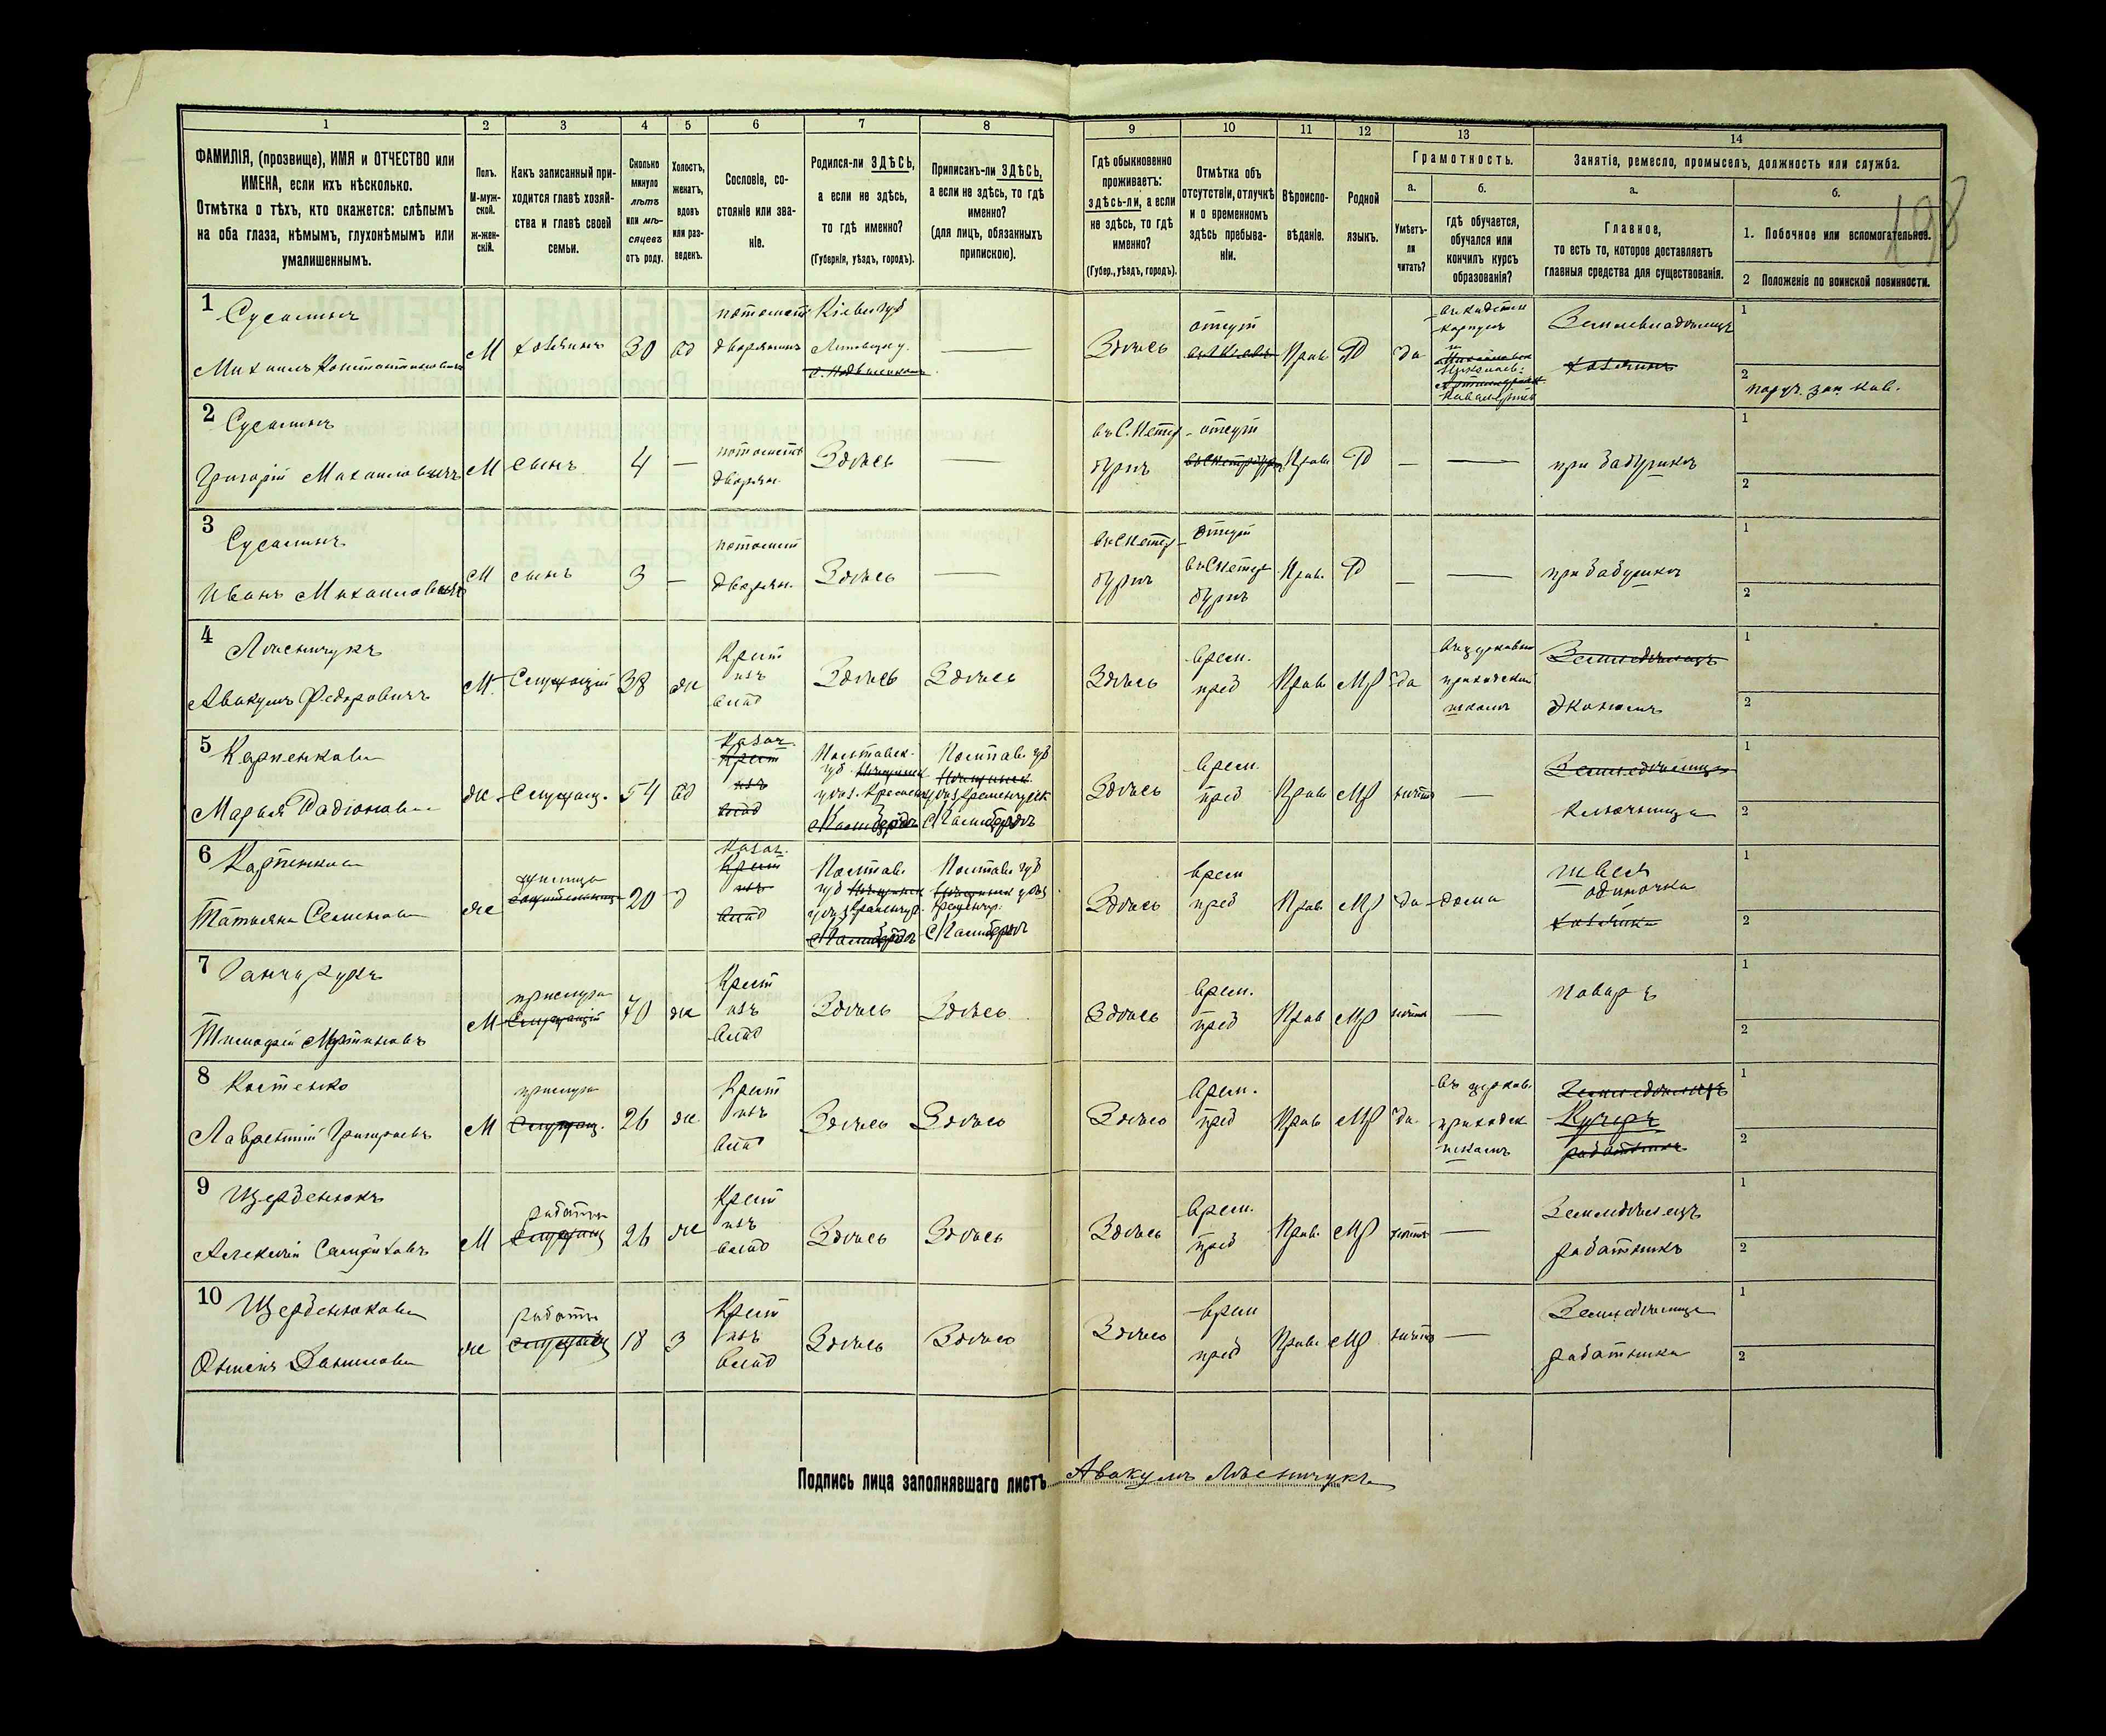 1 2 3 4 5 6 7 8 9 10 11 12 13 14
ФАМИЛІЯ, (прозвище), ИМЯ и ОТЧЕСТВО или
ИМЕНА, если ихъ нѣсколько.
Отмѣтка о тѣхъ, кто окажется: слѣпымъ
на оба глаза, нѣмымъ, глухонѣмымъ или
умалишеннымъ.
Полъ.
М-муж-
ской.
ж-жен-
скій.
Какъ записанный при-
ходится главѣ хозяй-
ства и главѣ своей
семьи.
Сколько
минуло
лѣтъ
или мѣ-
сяцевъ
отъ роду.
Холостъ,
женатъ,
вдовъ
или раз-
веденъ.
Сословіе, со-
стояніе или зва-
ніе.
Родился-ли ЗДѢСЬ,
а если не здѣсь,
то гдѣ именно?
(Губернія, уѣздъ, городъ).
Приписанъ-ли ЗДѢСЬ,
а если не здѣсь, то гдѣ
именно?
(для лицъ, обязанныхъ
припискою).
Гдѣ обыкновенно
проживаетъ:
здѣсь-ли, а если
не здѣсь, то гдѣ
именно?
(Губер., уѣздъ, городъ).
Отмѣтка объ
отсутствіи, отлучкѣ
и о временномъ
здѣсь пребыва-
ніи.
Вѣроиспо-
вѣданіе.
Родной
языкъ.
Грамотность.
а.
Умѣетъ-
ли
читать?
б.
гдѣ обучается,
обучался или
кончилъ курсъ
образованія?
Занятіе, ремесло, промыселъ, должность или служба.
а.
Главное,
то есть то, которое доставляетъ
главныя средства для существованія.
б.
1. Побочное или вспомогательное.
2 Положеніе по воинской повинности.
198
1
Михаилъ Константиновичъ
М хозяинъ 30 вд
потомств
дворянинъ
Кіевск губ
Здѣсь
отсут
Прав. Р да
въ кадетск
корпусѣ
Землевладѣлецъ
хозяинъ
1
2
поруч. зап. кав.
2
Григорій Михаиловичъ
М сынъ 4 —
потомств
дворян.
Здѣсь —
въ С. Петер
бургѣ
отсут
Прав Р — —
при бабушкѣ
1
2
3
Иванъ Михаиловичъ
М сынъ 3 —
потомст
дворян.
Здѣсь —
въ С Петер
бургѣ
отсут
въ С Петер
бургѣ
Прав. Р — —
при бабушкѣ
1
2
4
Лѣсничукъ
Авакумъ Федоровичъ
М. Служащій 38 ж
Крест
изъ
влад
Здѣсь Здѣсь Здѣсь
врем.
преб
Прав МР да
въ церковно
приходской
школѣ
Земледѣлецъ
Экономъ
1
2
5
Карпенкова
Марья Радіонова
ж Служащ. 54 вд
Казач.
Крест
изъ
влад
Полтавск.
губ
Полтав. губ
Здѣсь
врем.
преб
Прав МР —
Земледѣлица
Ключница
1
2
6
Татьяна Семенова
ж 20 д
Казач.
Крест
изъ
влад
Полтав.
губ
Полтав. губ
Здѣсь
врем
преб
Прав. МР да дома
швея
одиночка
хозяйка
1
2
7
Тимофей Мартиновъ
М
прислуга
Служащій
70 ж
Крест
изъ
влад
Здѣсь Здѣсь Здѣсь
врем.
преб
Прав МР —
поваръ
1
2
8
Костенко
Лаврентій Григорьевъ
М
прислуга
Служащ.
26 ж
Крест
изъ
влад
Здѣсь Здѣсь Здѣсь
врем.
преб
Прав МР да
въ церков.
приходск
школѣ
Земледѣлецъ
Кучеръ
работникъ
1
2
9
Щербенюкъ
Алексѣй
М 26 ж
Крест
изъ
влад
Здѣсь Здѣсь Здѣсь
врем.
преб
Прав. МР —
Земледѣлецъ
работникъ
1
2
10
Щербенюкова
Данилова
ж 18 З
Крест
изъ
влад
Здѣсь Здѣсь Здѣсь
врем
преб
Прав. МР —
Земледѣлица
работница
1
2
Подпись лица заполнявшаго листъ Авакумъ Лѣсничукъ